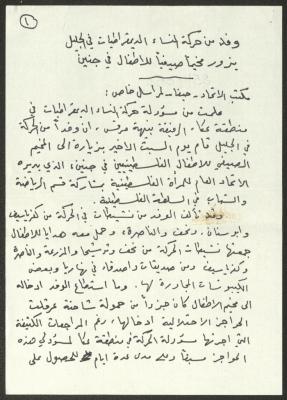 (١)
وفد من حركة النساء الديمقراطيات في الجليل
يزور مخيماً صيفياً للأطفال في جنين
مكتب الاتحاد - حيفا - لمراسل خاص:
علمت من مسؤولة حركة النساء الديمقراطيات في
منطقة عكا، الرفيقة نبيهة مرقس، أن وفداً من الحركة
في الجليل قام يوم السبت الأخير بزيارة الى المخيم
الصيفي للأطفال الفلسطينيين في جنين، الذي يديره
الاتحاد العام للمرأة الفلسطينية بمشاركة قسم الرياضة
والشباب في السلطة الفلسطينية.
وقد تألف الوفد من نشيطات في الحركة من كفرياسيف
وابوسنان، ونحف والناصرة، وحمل معه هدايا للأطفال
جمعتها نشيطات الحركة من نحف وترشيحا والمزرعة والناصرة
وكفرياسيف ومن صديقات وأصدقاء في نهاريا وبعض
الكيبوتسات المجاورة لها. وما استطاع الوفد ادخاله
الى مخيم الأطفال كان جزءاً من حمولة شاحنة عرقلت
الحواجز الاحتلالية ادخالها، رغم المراجعات الكثيفة
التي أجرتها مسؤولة الحركة في منطقة عكا لمسؤولي هذه
الحواجز مسبقاً وعلى مدى عدة ايام للحصول على